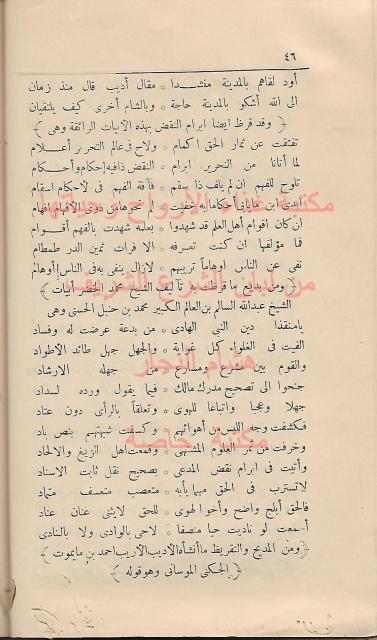 ٤٦
أود لقاهم بالمدينة منشدا * مقال أديب قال منذ زمان
الى الله أشكو بالمدينة حاجة * وبالشام أخرى كيف يلتقيان
﴿ وقد قرظ ايضا ابرام النقض بهذه الابيات الرائقة وهى ﴾
تفتقت عن ثمار الحق اكمام * ولاح فى عالم التحرير أعلام
لما أتانا من التحرير ابرام * النقض ذا فيه إحكام وأحكام
تلوح للفهم ان لم يلف ذا سقم * فآفة الفهم فى الاحكام اسقام
ان كان اقوام أهل العلم قد شهدوا * بعلمه شهدت بالفهم أقوام
فما مؤلفها ان كنت تعرفه * الا فرات ثمين الدر طمطام
نفى عن الناس اوهاماً تريبهم * لازال ينفى به فى الناس أوهام
﴿ ومن بديع ما قرظت به تآليف الشيخ محمد الخضر أبيات ﴾
الشيخ عبدالله السالم بن العالم الكبير محمد بن حنبل الحسنى وهى
يا منقذا دين النبى الهادى * من بدعة عرضت له وفساد
الفيت فى الغلواء كل غواية * والجهل جهل طائد الاطواد
والقوم بين مشرع ومسارع * من جهله الارشاد
جنحوا الى تصحيح مدرك مالك * فيما يقول ورده لسداد
جهلا وعجبا واتباعا للهوى * وتعلقاً بالرأى دون عتاد
فكشفت وجه اللبس من أهوائهم * وكسفت شبهتهم بنص باد
وخرفت من ثمر العلوم المشتهى * وقمعت أهل الزيغ والالحاد
وأتيت فى ابرام نقض المدعى * بصحيح نقل ثابت الاسناد
لاتسترب فى الحق مهما يأبه * متعصب متعسف متماد
فالحق أبلج واضح وأخو الهوى * للحق لايثنى عنان عناد
أسمعت لو ناديت حيا منصفا * لاحى بالوادى ولا بالنادى
﴿ ومن المديح والتقريظ ما أنشأه الأديب الأريب احمد بن مايموت ﴾
﴿ الجكنى الموسانى وهو قوله ﴾
مكتبة غذاء الأرواح وحياتها
من لبان الشرع الشريف
هشام النجار
مكتبة خاصة